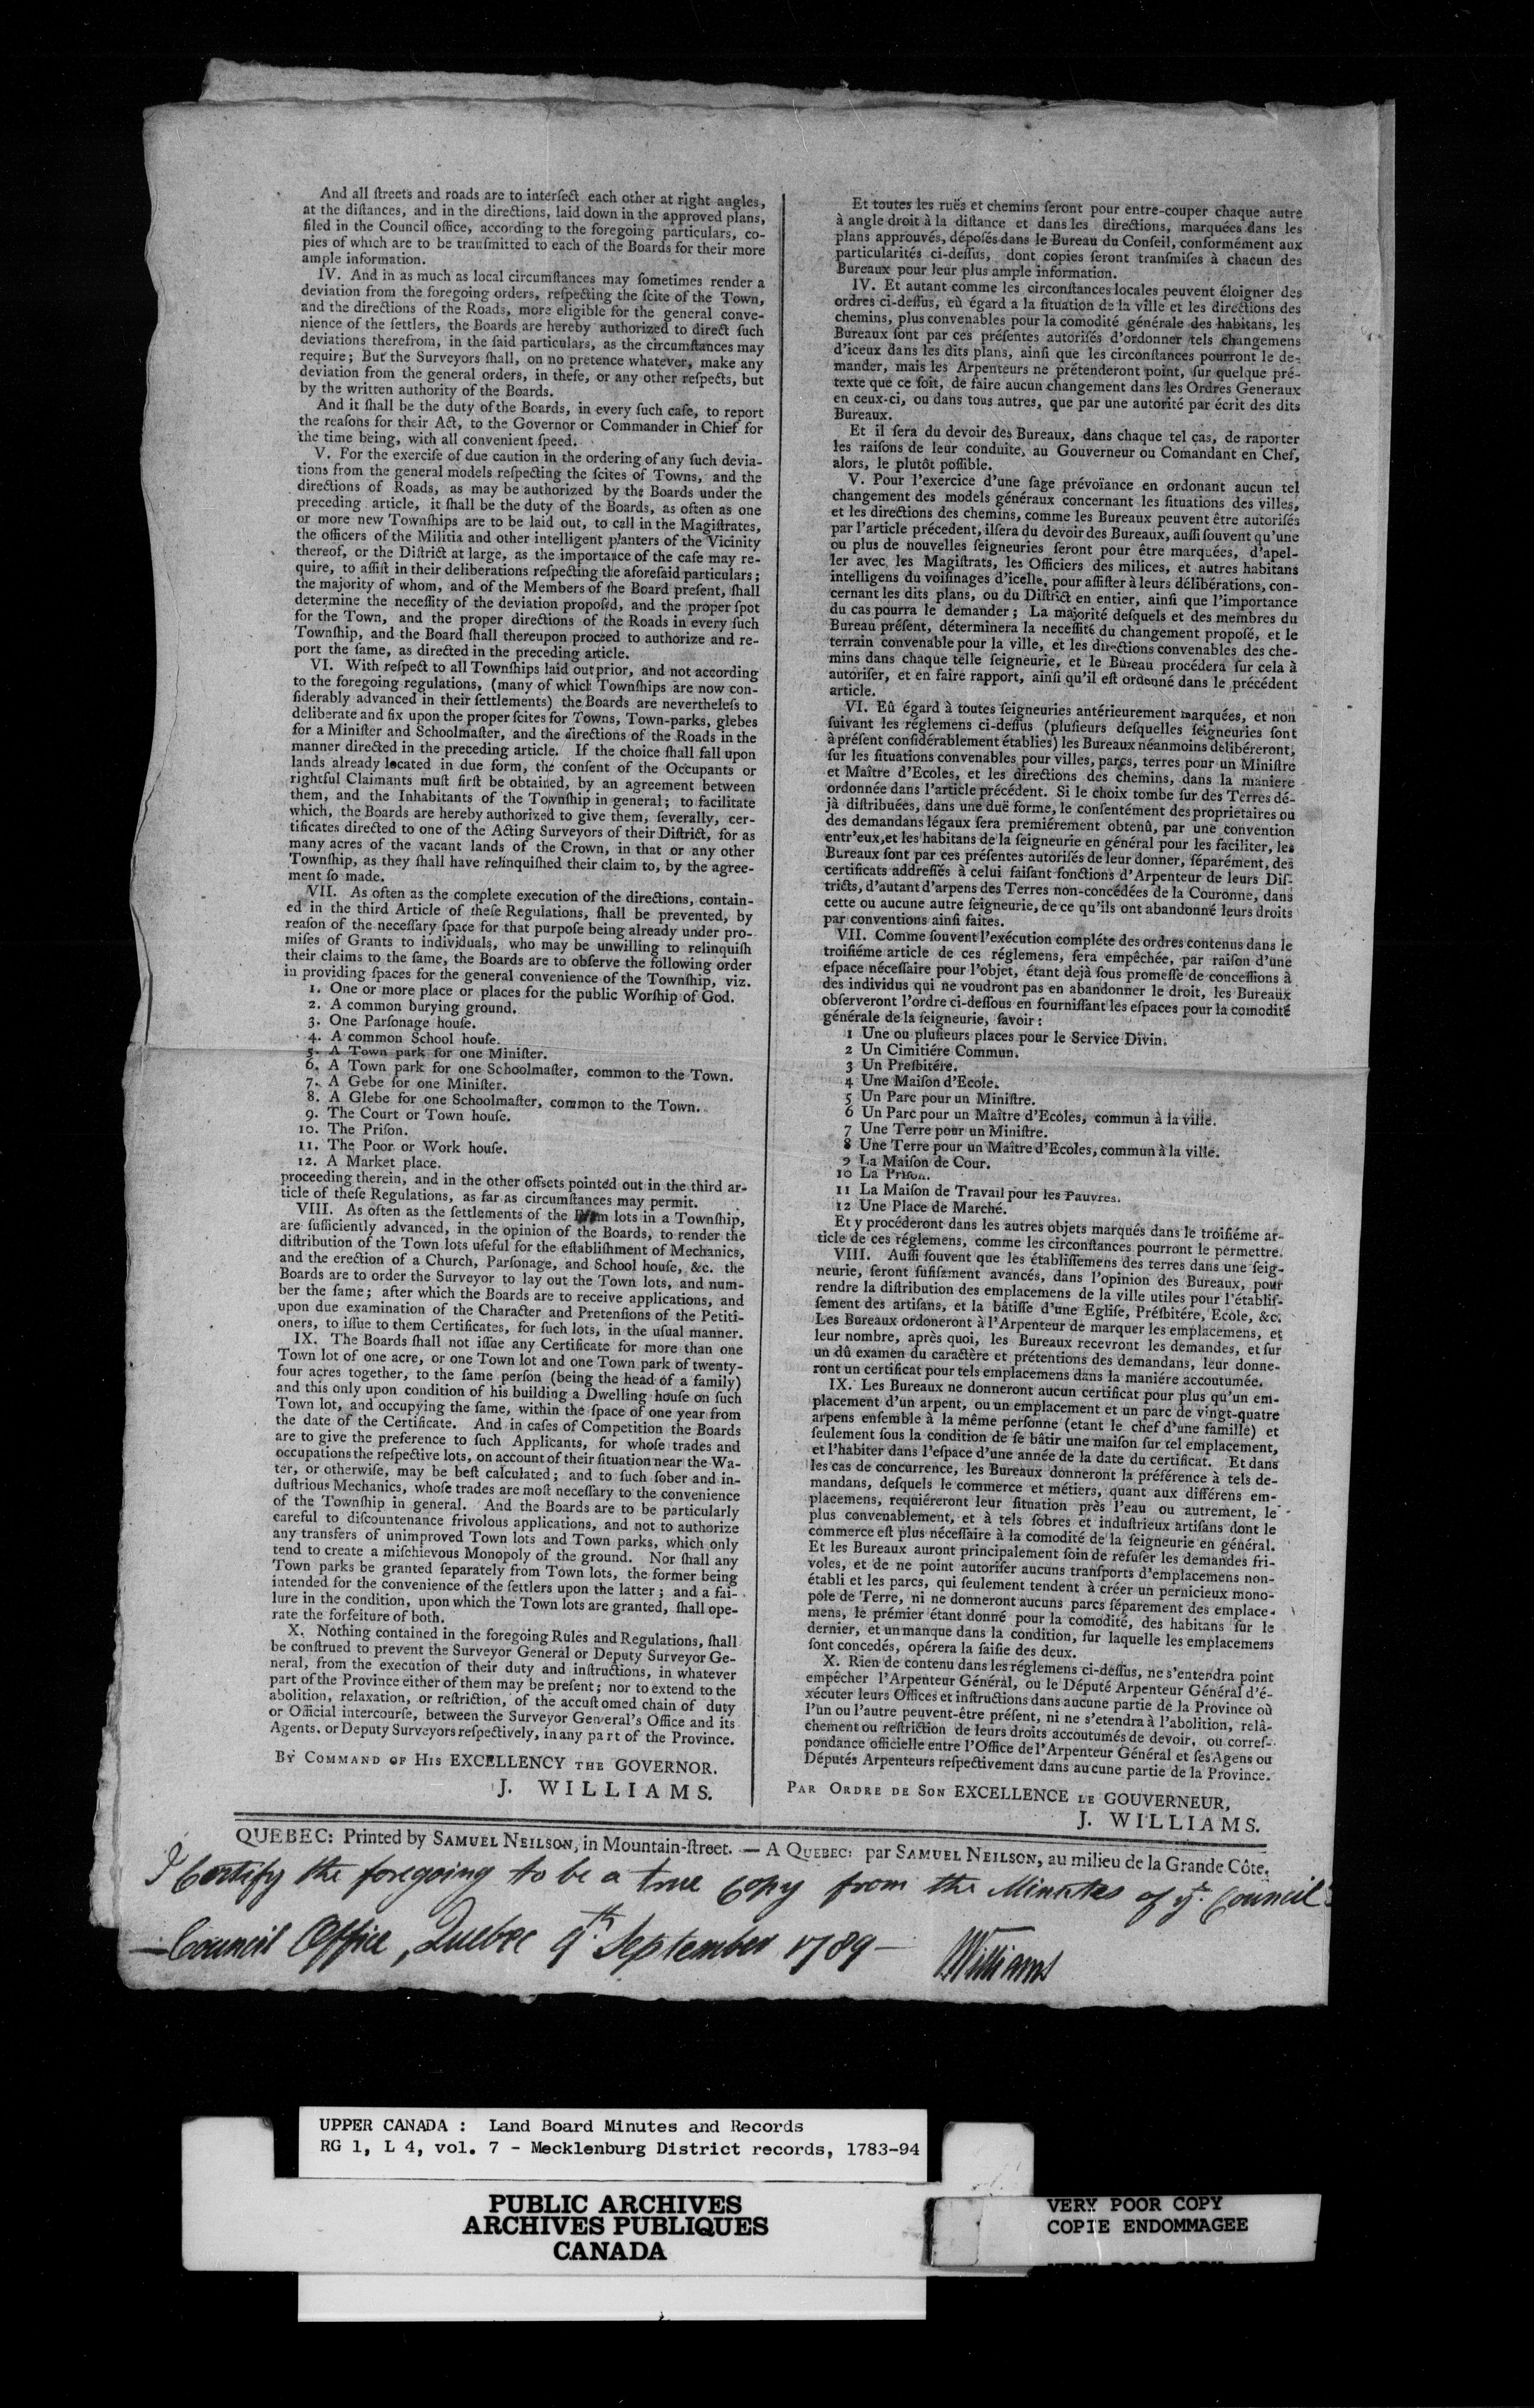 And all ſtreets and roads are to interſect each other at right angles,
at the diſtances, and in the directions, laid down in the approved plans,
filed in the Council office, according to the foregoing particulars, co-
pies of which are to be tranſmitted to each of the Boards for their more
ample information.
IV. And in as much as local circumſtances may ſometimes render a
deviation from the foregoing orders, reſpecting the ſcite of the Town,
and the directions of the Roads, more eligible for the general conve-
nience of the ſettlers, the Boards are hereby authorized to direct ſuch
deviations therefrom, in the ſaid particulars, as the circumſtances may
require; But the Surveyors ſhall, on no pretence whatever, make any
deviation from the general orders, in theſe, or any other reſpects, but
by the written authority of the Boards.
And it ſhall be the duty of the Boards, in every ſuch caſe, to report
the reaſons for their Act, to the Governor or Commander in Chief for
the time being, with all convenient ſpeed.
V. For the exerciſe of due caution in the ordering of any ſuch devia-
tions from the general models reſpecting the ſcites of Towns, and the
directions of Roads, as may be authorized by the Boards under the
preceding article, it ſhall be the duty of the Boards, as often as one
or more new Townſhips are to be laid out, to call in the Magiſtrates,
the officers of the Militia and other intelligent planters of the Vicinity
thereof, or the Diſtrict at large, as the importance of the caſe may re-
quire, to aſſiſt in their deliberations reſpecting the aforeſaid particulars;
the majority of whom, and of the Members of the Board preſent, ſhall
determine the neceſſity of the deviation propoſed, and the proper ſpot
for the Town, and the proper directions of the Roads in every ſuch
Townſhip, and the Board ſhall thereupon proceed to authorize and re-
port the ſame, as directed in the preceding article.
VI. With reſpect to all Townſhips laid out prior, and not according
to the foregoing regulations, (many of which Townſhips are now con-
ſiderably advanced in their ſettlements) the Boards are nevertheleſs to
deliberate and fix upon the proper ſcites for Towns, Town-parks, glebes
for a Miniſter and Schoolmaſter, and the directions of the Roads in the
manner directed in the preceding article. If the choice ſhall fall upon
lands already located in due form, the conſent of the Occupants or
rightful Claimants muſt firſt be obtained, by an agreement between
them, and the Inhabitants of the Townſhip in general; to facilitate
which, the Boards are hereby authorized to give them, ſeverally, cer-
tificates directed to one of the Acting Surveyors of their Diſtrict, for as
many acres of the vacant lands of the Crown, in that or any other
Townſhip, as they ſhall have relinquiſhed their claim to, by the agree-
ment ſo made.
VII. As often as the complete execution of the directions, contain-
ed in the third Article of theſe Regulations, ſhall be prevented, by
reaſon of the neceſſary ſpace for that purpoſe being already under pro-
miſes of Grants to individuals, who may be unwilling to relinquiſh
their claims to the ſame, the Boards are to obſerve the following order
in providing ſpaces for the general convenience of the Townſhip, viz.
1. One or more place or places for the public Worſhip of God.
2. A common burying ground.
3. One Parſonage houſe.
4. A common School houſe.
5. A Town park for one Miniſter.
6. A Town park for one Schoolmaſter, common to the Town.
7. A Gebe for one Miniſter.
8. A Glebe for one Schoolmaſter, common to the Town.
9. The Court or Town houſe.
10. The Priſon.
11. The Poor or Work houſe.
12. A Market place.
proceeding therein, and in the other offsets pointed out in the third ar-
ticle of theſe Regulations, as far as circumſtances may permit.
VIII. As often as the ſettlements of the lots in a Townſhip,
are ſufficiently advanced, in the opinion of the Boards, to render the
diſtribution of the Town lots uſeful for the eſtabliſhment of Mechanics,
and the erection of a Church, Parſonage, and School houſe, &c. the
Boards are to order the Surveyor to lay out the Town lots, and num-
ber the ſame; after which the Boards are to receive applications, and
upon due examination of the Character and Pretenſions of the Petiti-
oners, to iſſue to them Certificates, for ſuch lots, in the uſual manner.
IX. The Boards ſhall not iſſue any Certificate for more than one
Town lot of one acre, or one Town lot and one Town park of twenty-
four acres together, to the ſame perſon (being the head of a family)
and this only upon condition of his building a Dwelling houſe on ſuch
Town lot, and occupying the ſame, within the ſpace of one year from
the date of the Certificate. And in caſes of Competition the Boards
are to give the preference to ſuch Applicants, for whoſe trades and
occupations the reſpective lots, on account of their ſituation near the Wa-
ter, or otherwiſe, may be beſt calculated; and to ſuch ſober and in-
duſtrious Mechanics, whoſe trades are moſt neceſſary to the convenience
of the Townſhip in general. And the Boards are to be particularly
careful to diſcountenance frivolous applications, and not to authorize
any transfers of unimproved Town lots and Town parks, which only
tend to create a miſchievous Monopoly of the ground. Nor ſhall any
Town parks be granted ſeparately from Town lots, the former being
intended for the convenience of the ſettlers upon the latter; and a fai-
lure in the condition, upon which the Town lots are granted, ſhall ope-
rate the forfeiture of both.
X. Nothing contained in the foregoing Rules and Regulations, ſhall
be conſtrued to prevent the Surveyor General or Deputy Surveyor Ge-
neral, from the execution of their duty and inſtructions, in whatever
part of the Province either of them may be preſent; nor to extend to the
abolition, relaxation, or reſtriction, of the accuſtomed chain of duty
or Official intercourſe, between the Surveyor General's Office and its
Agents, or Deputy Surveyors reſpectively, in any part of the Province.
BY COMMAND OF HIS EXCELLENCY THE GOVERNOR.
J. WILLIAMS.
Et toutes les ruës et chemins ſeront pour entre-couper chaque autre
à angle droit à la diſtance et dans les directions, marquées dans les
plans approuvés, dépoſés dans le Bureau du Conſeil, conformément aux
particularités ci-deſſus, dont copies ſeront tranſmiſes à chacun des
Bureaux pour leur plus ample information.
IV. Et autant comme les circonſtances locales peuvent éloigner des
ordres ci-deſſus, eû égard a la ſituation de la ville et les directions des
chemins, plus convenables pour la comodité générale des habitans, les
Bureaux ſont par ces préſentes autoriſés d'ordonner tels changemens
d'iceux dans les dits plans, ainſi que les circonſtances pourront le de-
mander, mais les Arpenteurs ne prétenderont point, ſur quelque pré-
texte que ce ſoit, de faire aucun changement dans les Ordres Generaux
en ceux-ci, ou dans tous autres, que par une autorité par écrit des dits
Bureaux.
Et il ſera du devoir des Bureaux, dans chaque tel cas, de raporter
les raiſons de leur conduite, au Gouverneur ou Comandant en Chef,
alors, le plutôt poſſible.
V. Pour l'exercice d'une ſage prévoïance en ordonant aucun tel
changement des models généraux concernant les ſituations des villes,
et les directions des chemins, comme les Bureaux peuvent être autoriſés
par l'article précedent, il ſera du devoir des Bureaux, auſſi ſouvent qu'une
ou plus de nouvelles ſeigneuries ſeront pour être marquées, d'apel-
ler avec les Magiſtrats, les Officiers des milices, et autres habitans
intelligens du voiſinages d'icelle, pour aſſiſter à leurs délibérations, con-
cernant les dits plans, ou du Diſtrict en entier, ainſi que l'importance
du cas pourra le demander; La majorité deſquels et des membres du
Bureau préſent, déterminera la neceſſité du changement propoſé, et le
terrain convenable pour la ville, et les directions convenables des che-
mins dans chaque telle ſeigneurie, et le Bureau procédera ſur cela à
autoriſer, et en faire rapport, ainſi qu'il eſt ordonné dans le précédent
article.
VI. Eû égard à toutes ſeigneuries antérieurement marquées, et non
ſuivant les réglemens ci-deſſus (pluſieurs deſquelles ſeigneuries ſont
à préſent conſidérablement établies) les Bureaux néanmoins delibéreront,
ſur les ſituations convenables pour villes, parcs, terres pour un Miniſtre
et Maître d'Ecoles, et les directions des chemins, dans la maniere
ordonnée dans l'article précédent. Si le choix tombe ſur des Terres dé-
jà diſtribuées, dans une duë forme, le conſentément des proprietaires ou
des demandans légaux ſera premiérement obtenû, par une convention
entr'eux, et les habitans de la ſeigneurie en général pour les faciliter, les
Bureaux ſont par ces préſentes autoriſés de leur donner, ſéparément, des
certificats addreſſés à celui faiſant fonctions d'Arpenteur de leurs Diſ-
tricts, d'autant d'arpens des Terres non-concédées de la Couronne, dans
cette ou aucune autre ſeigneurie, de ce qu'ils ont abandonné leurs droits
par conventions ainſi faites.
VII. Comme ſouvent l'exécution compléte des ordres contenus dans le
troiſiéme article de ces réglemens, ſera empêchée, par raiſon d'une
eſpace néceſſaire pour l'objet, étant dejà ſous promeſſe de conceſſions à
des individus qui ne voudront pas en abandonner le droit, les Bureaux
obſerveront l'ordre ci-deſſous en fourniſſant les eſpaces pour la comodité
générale de la ſeigneurie, ſavoir:
1 Une ou pluſieurs places pour le Service Divin.
2 Un Cimitiére Commun.
3 Un Preſbitére.
4 Une Maiſon d'Ecole.
5 Un Parc pour un Miniſtre.
6 Un Parc pour un Maître d'Ecoles, commun à la ville.
7 Une Terre pour un Miniſtre.
8 Une Terre pour un Maître d'Ecoles, commun à la ville.
9 La Maiſon de Cour.
10 La Priſon.
11 La Maiſon de Travail pour les Pauvres.
12 Une Place de Marché.
Et y procéderont dans les autres objets marqués dans le troiſiéme ar-
ticle de ces réglemens, comme les circonſtances pourront le permettre.
VIII. Auſſi ſouvent que les établiſſemens des terres dans une ſeig-
neurie, ſeront ſufiſament avancés, dans l'opinion des Bureaux, pour
rendre la diſtribution des emplacemens de la ville utiles pour l'établiſ-
ſement des artiſans, et la bâtiſſe d'une Egliſe, Préſbitére, Ecole, &c.
Les Bureaux ordoneront à l'Arpenteur de marquer les emplacemens, et
leur nombre, après quoi, les Bureaux recevront les demandes, et ſur
un dû examen du caractère et prétentions des demandans, leur donne-
ront un certificat pour tels emplacemens dans la maniére accoutumée.
IX. Les Bureaux ne donneront aucun certificat pour plus qu'un em-
placement d'un arpent, ou un emplacement et un parc de vingt-quatre
arpens enſemble à la même perſonne (etant le chef d'une famille) et
ſeulement ſous la condition de ſe bâtir une maiſon ſur tel emplacement,
et l'habiter dans l'eſpace d'une année de la date du certificat. Et dans
les cas de concurrence, les Bureaux donneront la préférence à tels de-
mandans, deſquels le commerce et métiers, quant aux différens em-
placemens, requiéreront leur ſituation près l'eau ou autrement, le
plus convenablement, et à tels ſobres et induſtrieux artiſans dont le
commerce eſt plus néceſſaire à la comodité de la ſeigneurie en général.
Et les Bureaux auront principalement ſoin de refuſer les demandes fri-
voles, et de ne point autoriſer aucuns tranſports d'emplacemens non-
établi et les parcs, qui ſeulement tendent à créer un pernicieux mono-
pole de Terre, ni ne donneront aucuns parcs ſéparement des emplace-
mens, le prémier étant donné pour la comodité, des habitans ſur le
dernier, et un manque dans la condition, ſur laquelle les emplacemens
ſont concedés, opérera la ſaiſie des deux.
X. Rien de contenu dans les réglemens ci-deſſus, ne s'entendra point
empêcher l'Arpenteur Général, ou le Député Arpenteur Général d'é-
xécuter leurs Offices et inſtructions dans aucune partie de la Province où
l'un ou l'autre peuvent-être préſent, ni ne s'etendra à l'abolition, relâ-
chement ou reſtriction de leurs droits accoutumés de devoir, ou correſ-
pondance officielle entre l'Office de l'Arpenteur Général et ſes Agens ou
Députés Arpenteurs reſpectivement dans aucune partie de la Province.
PAR ORDRE DE SON EXCELLENCE LE GOUVERNEUR,
J. WILLIAMS.
QUEBEC: Printed by SAMUEL NEILSON, in Mountain-ſtreet. — A QUEBEC: par SAMUEL NEILSON, au milieu de la Grande Côte.
I Certify the foregoing to be a true copy from the Minutes of ye. Council
—Council Office, Quebec 9th. September 1789 — JWilliams
UPPER CANADA : Land Board Minutes and Records
RG 1, L 4, vol. 7 - Mecklenburg District records, 1783-94
PUBLIC ARCHIVES
ARCHIVES PUBLIQUES
CANADA
VERY POOR COPY
COPIE ENDOMMAGEE
VERY POOR COPY